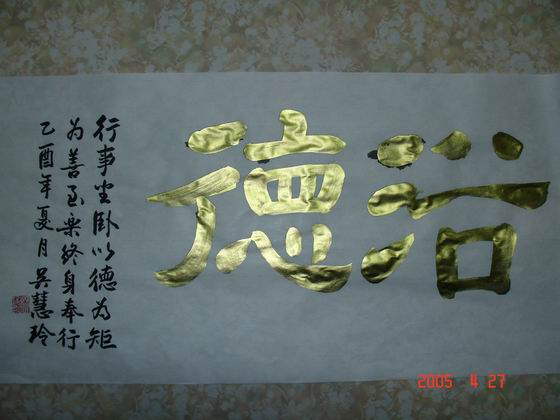 浴德
行事坐卧以德为矩
为善至乐终身奉行
乙酉年夏月吴慧玲
2005 4 27